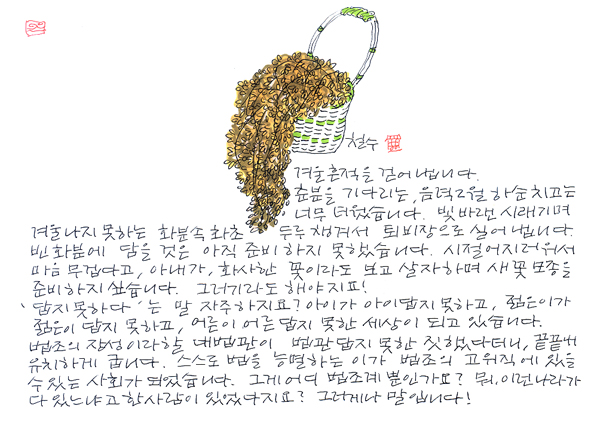 철수
겨울흔적을 걷어냅니다.
춘분을 기다리는, 음력2월 하순치고는
너무 더웠습니다. 빛바랜 시래기며
겨울나지 못하는 화분속 화초 두루 챙겨서 퇴비장으로 실어 냅니다.
빈 화분에 담을 것은 아직 준비하지 못했습니다. 시절어지러워서
마음 무겁다고, 아내가, 화사한 꽃이라도 보고 살자하며 새 꽃 모종을
준비하지 싶습니다. 그러기라도 해야지요!
'답지못하다'는 말 자주하지요? 아이가 아이답지 못하고, 젊은이가
젊은이 답지 못하고, 어른이 어른 답지 못한 세상이 되고 있습니다.
법조의 장성이라할 대법관이 법관 답지 못한 짓 했다더니, 끝끝내
유치하게 굽니다. 스스로 법을 능멸하는 이가 법조의 고위직에 있을
수 있는 사회가 되었습니다. 그게 어디 법조계 뿐인가요? 뭐, 이런 나라가
다 있느냐고 한 사람이 있었다지요? 그러게나 말입니다!